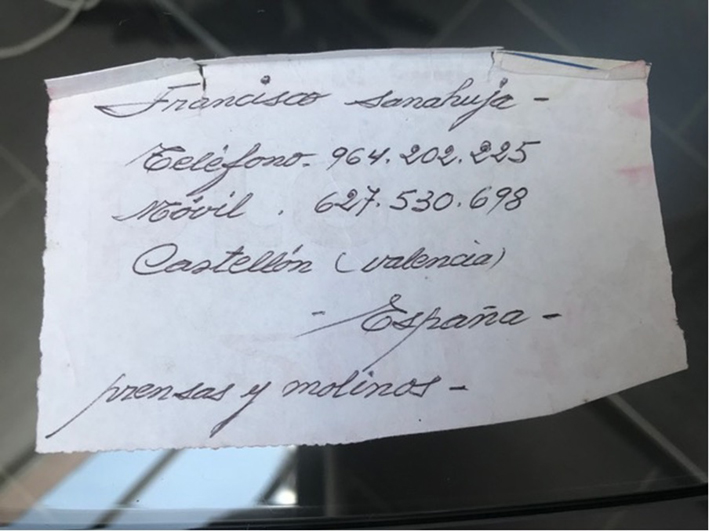 Francisco Sanahuja -
Teléfono - 964.202.225
Móvil . 627.530.698
Castellón (Valencia)
- España -
prensas y molinos -